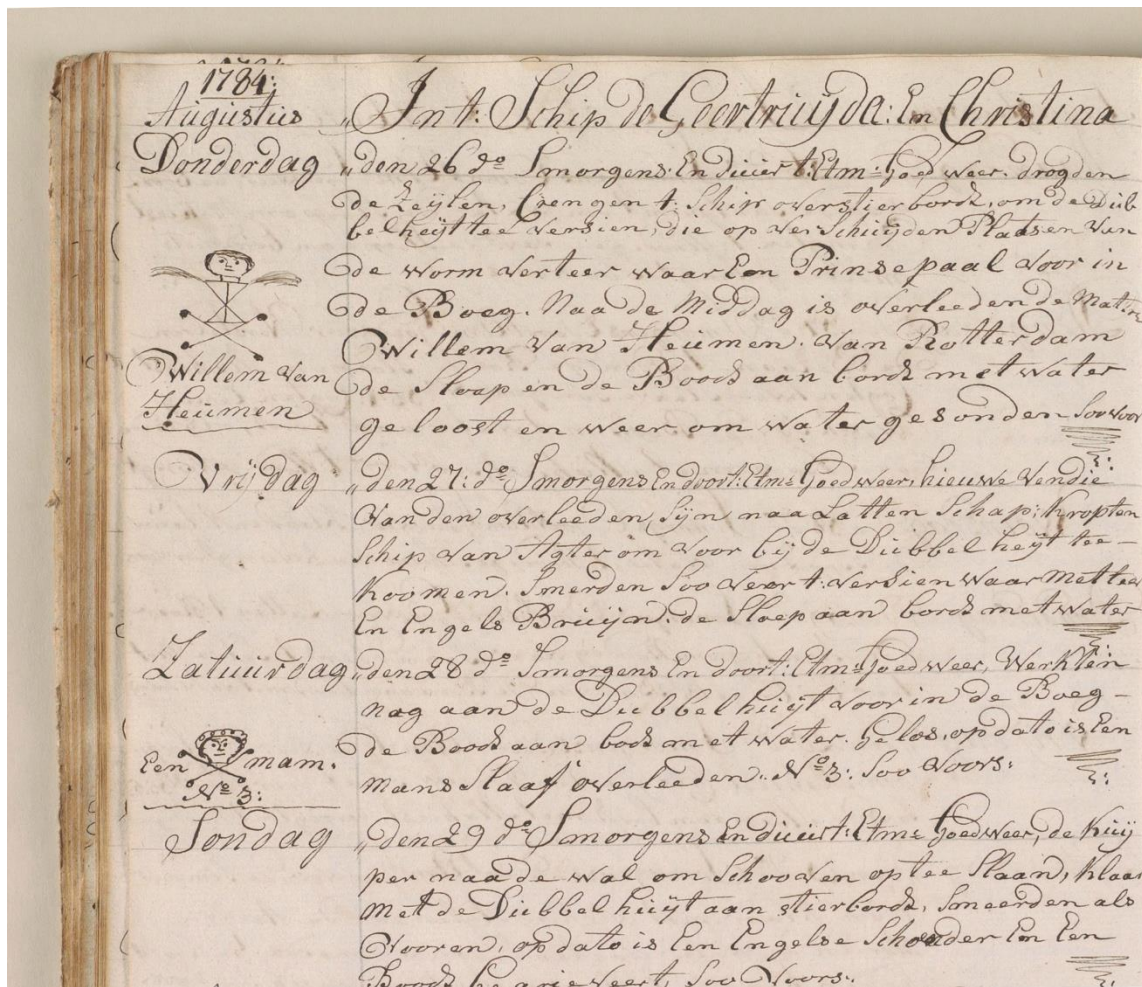 1784:
Augustus „ Int: Schip de Geertruijda: En Christina
Donderdag „den 26 do Smorgens: En duurt: Etm: Goed weer. drogden
de Zeylen, Crengen t: Schip over stierbordt, om de Dub
belheijt tee versien, die op verSchuijden Plaatsen van
de worm verteer waar Een Prinsepaal voor in
de Boeg. Naa de Middag is overleeden de Matro
Willem Van Heumen. Van Rotterdam
Willem Van
Heumen
de Sloep en de Boodt aan bordt met water
ge loost en weer om water gesonden Soo voor
Vrijdag „den 27: do Smorgens En doort: Etm: Goed weer, hieuwe Vendie
Van den overleeden Sijn naa Latten Schap: Kropten
Schip van Agter om voor bij de Dubbel heijt tee –
Koomen. Smerden Soo veer t: versien waar met teer
En Engels Bruijn. de Sloep aan bordt met water
Zatuurdag „den 28 do Smorgens En doort: Etm: Goed weer, Werkten
nog aan de Dubbel huijt voor in de Boeg –
de Boodt aan bodt met water. Gelos. op dato is Een
mans Slaaf overleeden.. No 3: Soo Voors:
Een mam:
No 3:
Sondag „den 29 do Smorgens En duurt: Etm: Goed weer, de Kuij
per naa de wal om Schooven op tee Slaan, Klaar
met de Dubbel huijt aan stierbordt, Smeerden als
Vooren, op dato is Een Engelse Schoender En Een
Boodt Soo Voors: